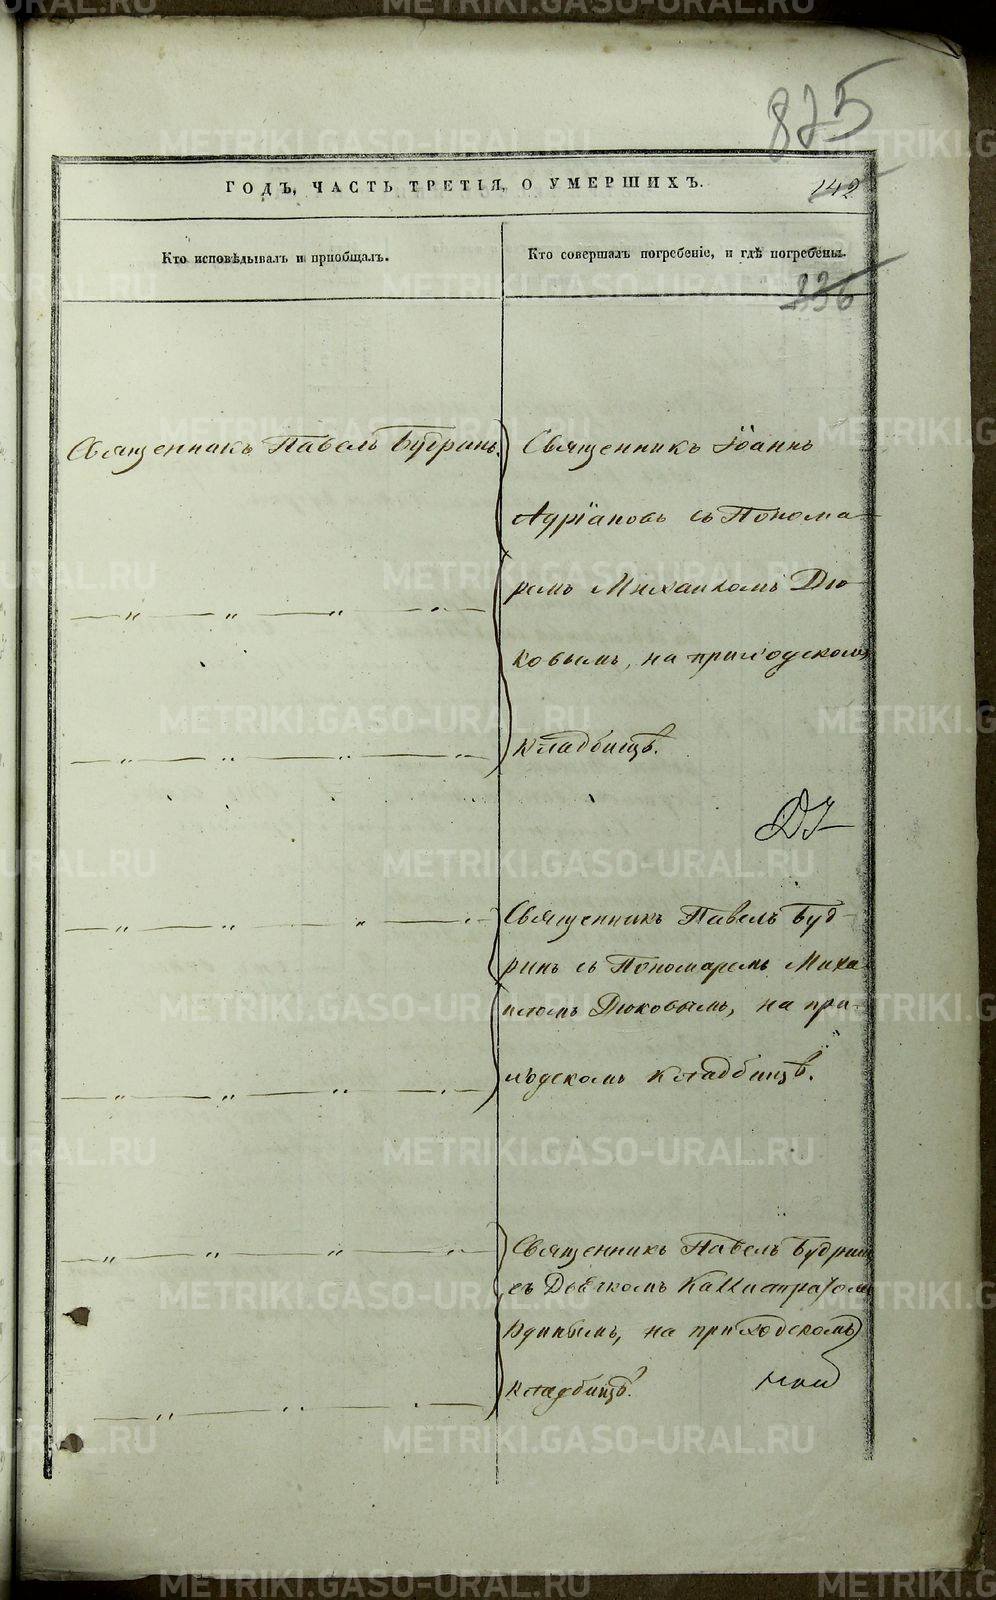 875
ГОДЪ, ЧАСТЬ ТРЕТІЯ, О УМЕРШИХЪ.
142
Кто исповѣдывалъ и пріобщалъ.
Кто совершалъ погребеніе, и гдѣ погребены.
336
Священникъ Павелъ Будринъ.
Священникъ Іоаннъ
Адріановъ съ Понома-
ремъ Михаиломъ Дю-
ковымъ, на приходскомъ
кладбищѣ.
Священникъ Павелъ Буд-
ринъ съ Пономаремъ Миха-
иломъ Дюковымъ, на при-
ходскомъ кладбищѣ.
Священникъ Павелъ Будринъ
съ Дьячкомъ Каллистратомъ
Юдинымъ, на приходскомъ
кладбищѣ.
METRIKI.GASO-URAL.RU